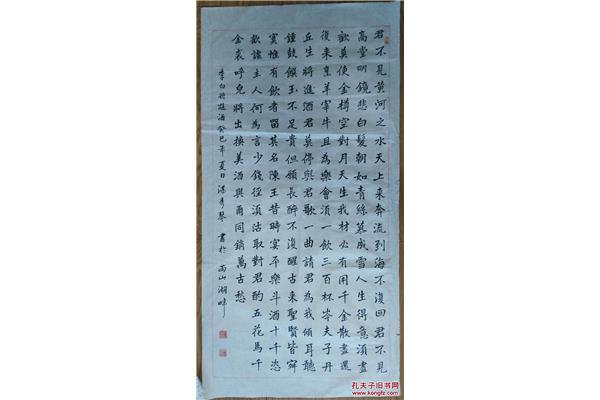 君不見黃河之水天上来奔流到海不復回君不見
高堂明鏡悲白髮朝如青絲暮成雪人生得意須盡
歡莫使金樽空對月天生我材必有用千金散盡還
復来烹羊宰牛且為樂會須一飲三百杯岑夫子丹
丘生將進酒君莫停與君歌一曲請君為我傾耳聽
鐘鼓饌玉不足貴但願長醉不復醒古来聖賢皆寂
寞惟有飲者留其名陳王昔時宴平樂斗酒十千恣
歡謔主人何為言少錢徑須沽取對君酌五花馬千
金裘呼兒將出換美酒與爾同銷萬古愁
李白將進酒癸巳年夏日 秀琴 書於 雨山湖畔
孔夫子旧书网
www.kongfz.com